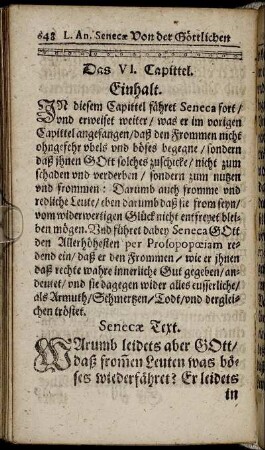 648 L. An. Senecæ Von der Göttlichen
Das VI. Capittel.
Einhalt.
IN diesem Capittel fähret Seneca fort/
vnd erweiset weiter/ was er im vorigen
Capittel angefangen/ daß den Frommen nicht
ohngefehr vbels vnd böses begegne/ sondern
daß jhnen GOtt solches zuschicke/ nicht zum
schaden vnd verderben/ sondern zum nutzen
vnd frommen: Darumb auch fromme vnd
redliche Leute/ eben darumb daß sie from seyn/
vom widerwertigen Glück nicht entfreyet bleiben
mögen. Vnd führet dabey Seneca GOtt
den Allerhöhesten per Prosopopœiam redend
ein/ daß er den Frommen/ wie er jhnen
daß rechte wahre innerliche Gut gegeben/ andeutet/
vnd sie dagegen wider alles eusserliche/
als Armuth/ Schmertzen/ Todt/ vnd dergleichen
tröstet.
Senecæ Text.
WArumb leidets aber GOtt/
daß from̃en Leuten was böses
wiederfähret? Er leidets
in